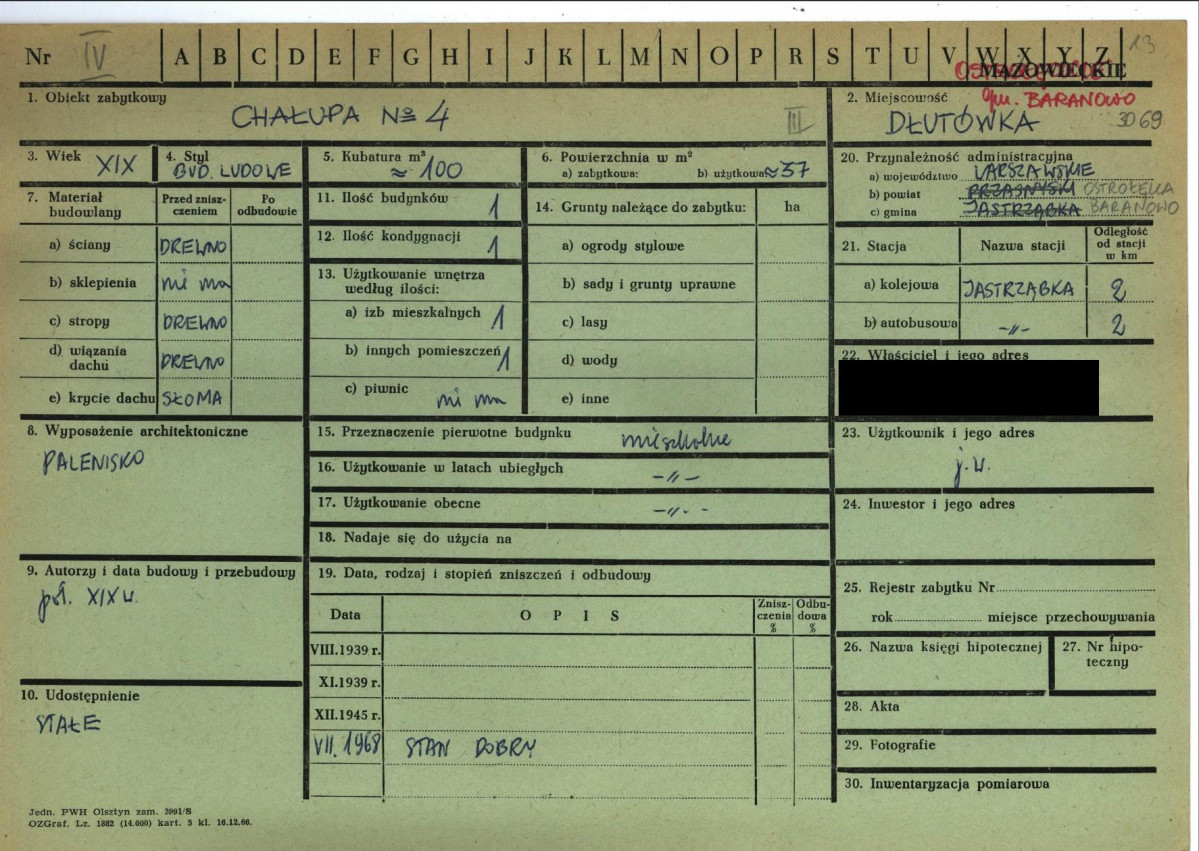 Nr IV A B C D E F G H I J K L M N O P R S T U V W X Y Z 13
MAZOWIECKIE
gm. BARANOWO
1. Obiekt zabytkowy
CHAŁUPA № 4 III
2. Miejscowość
DŁUTÓWKA 3069
3. Wiek XIX
4. Styl
BUD. LUDOWE
5. Kubatura m³
≈ 100
6. Powierzchnia w m²
a) zabytkowa: b) użytkowa ≈37
7. Materiał budowlany
Przed znisz-
czeniem
Po
odbudowie
a) ściany DREWNO
b) sklepienia ni ma
c) stropy DREWNO
d) wiązania
dachu DREWNO
e) krycie dachu SŁOMA
8. Wyposażenie architektoniczne
PALENISKO
9. Autorzy i data budowy i przebudowy
poł. XIX w.
10. Udostępnienie
STAŁE
11. Ilość budynków 1
12. Ilość kondygnacji 1
13. Użytkowanie wnętrza
według ilości:
a) izb mieszkalnych 1
b) innych pomieszczeń 1
c) piwnic ni ma
14. Grunty należące do zabytku: ha
a) ogrody stylowe
b) sady i grunty uprawne
c) lasy
d) wody
e) inne
15. Przeznaczenie pierwotne budynku mieszkalne
16. Użytkowanie w latach ubiegłych -"-
17. Użytkowanie obecne -"-
18. Nadaje się do użycia na
19. Data, rodzaj i stopień zniszczeń i odbudowy
Data O P I S Znisz-
czenia
%
Odbu-
dowa
%
VIII.1939 r.
XI.1939 r.
XII.1945 r.
VII. 1968 STAN DOBRY
20. Przynależność administracyjna
a) województwo WARSZAWSKIE
b) powiat PRZASNYSKI OSTROŁĘKA
c) gmina JASTRZĄBKA BARANOWO
21. Stacja Nazwa stacji Odległość
od stacji
w km
a) kolejowa JASTRZĄBKA 2
b) autobusowa -"- 2
22. Właściciel i jego adres
23. Użytkownik i jego adres
j.w.
24. Inwestor i jego adres
25. Rejestr zabytku Nr
rok miejsce przechowywania
26. Nazwa księgi hipotecznej
27. Nr hipo-
teczny
28. Akta
29. Fotografie
30. Inwentaryzacja pomiarowa
Jedn. PWH Olsztyn zam. 3991/S
OZGraf. Lz. 1882 (14.000) kart. 5 kl. 16.12.66.